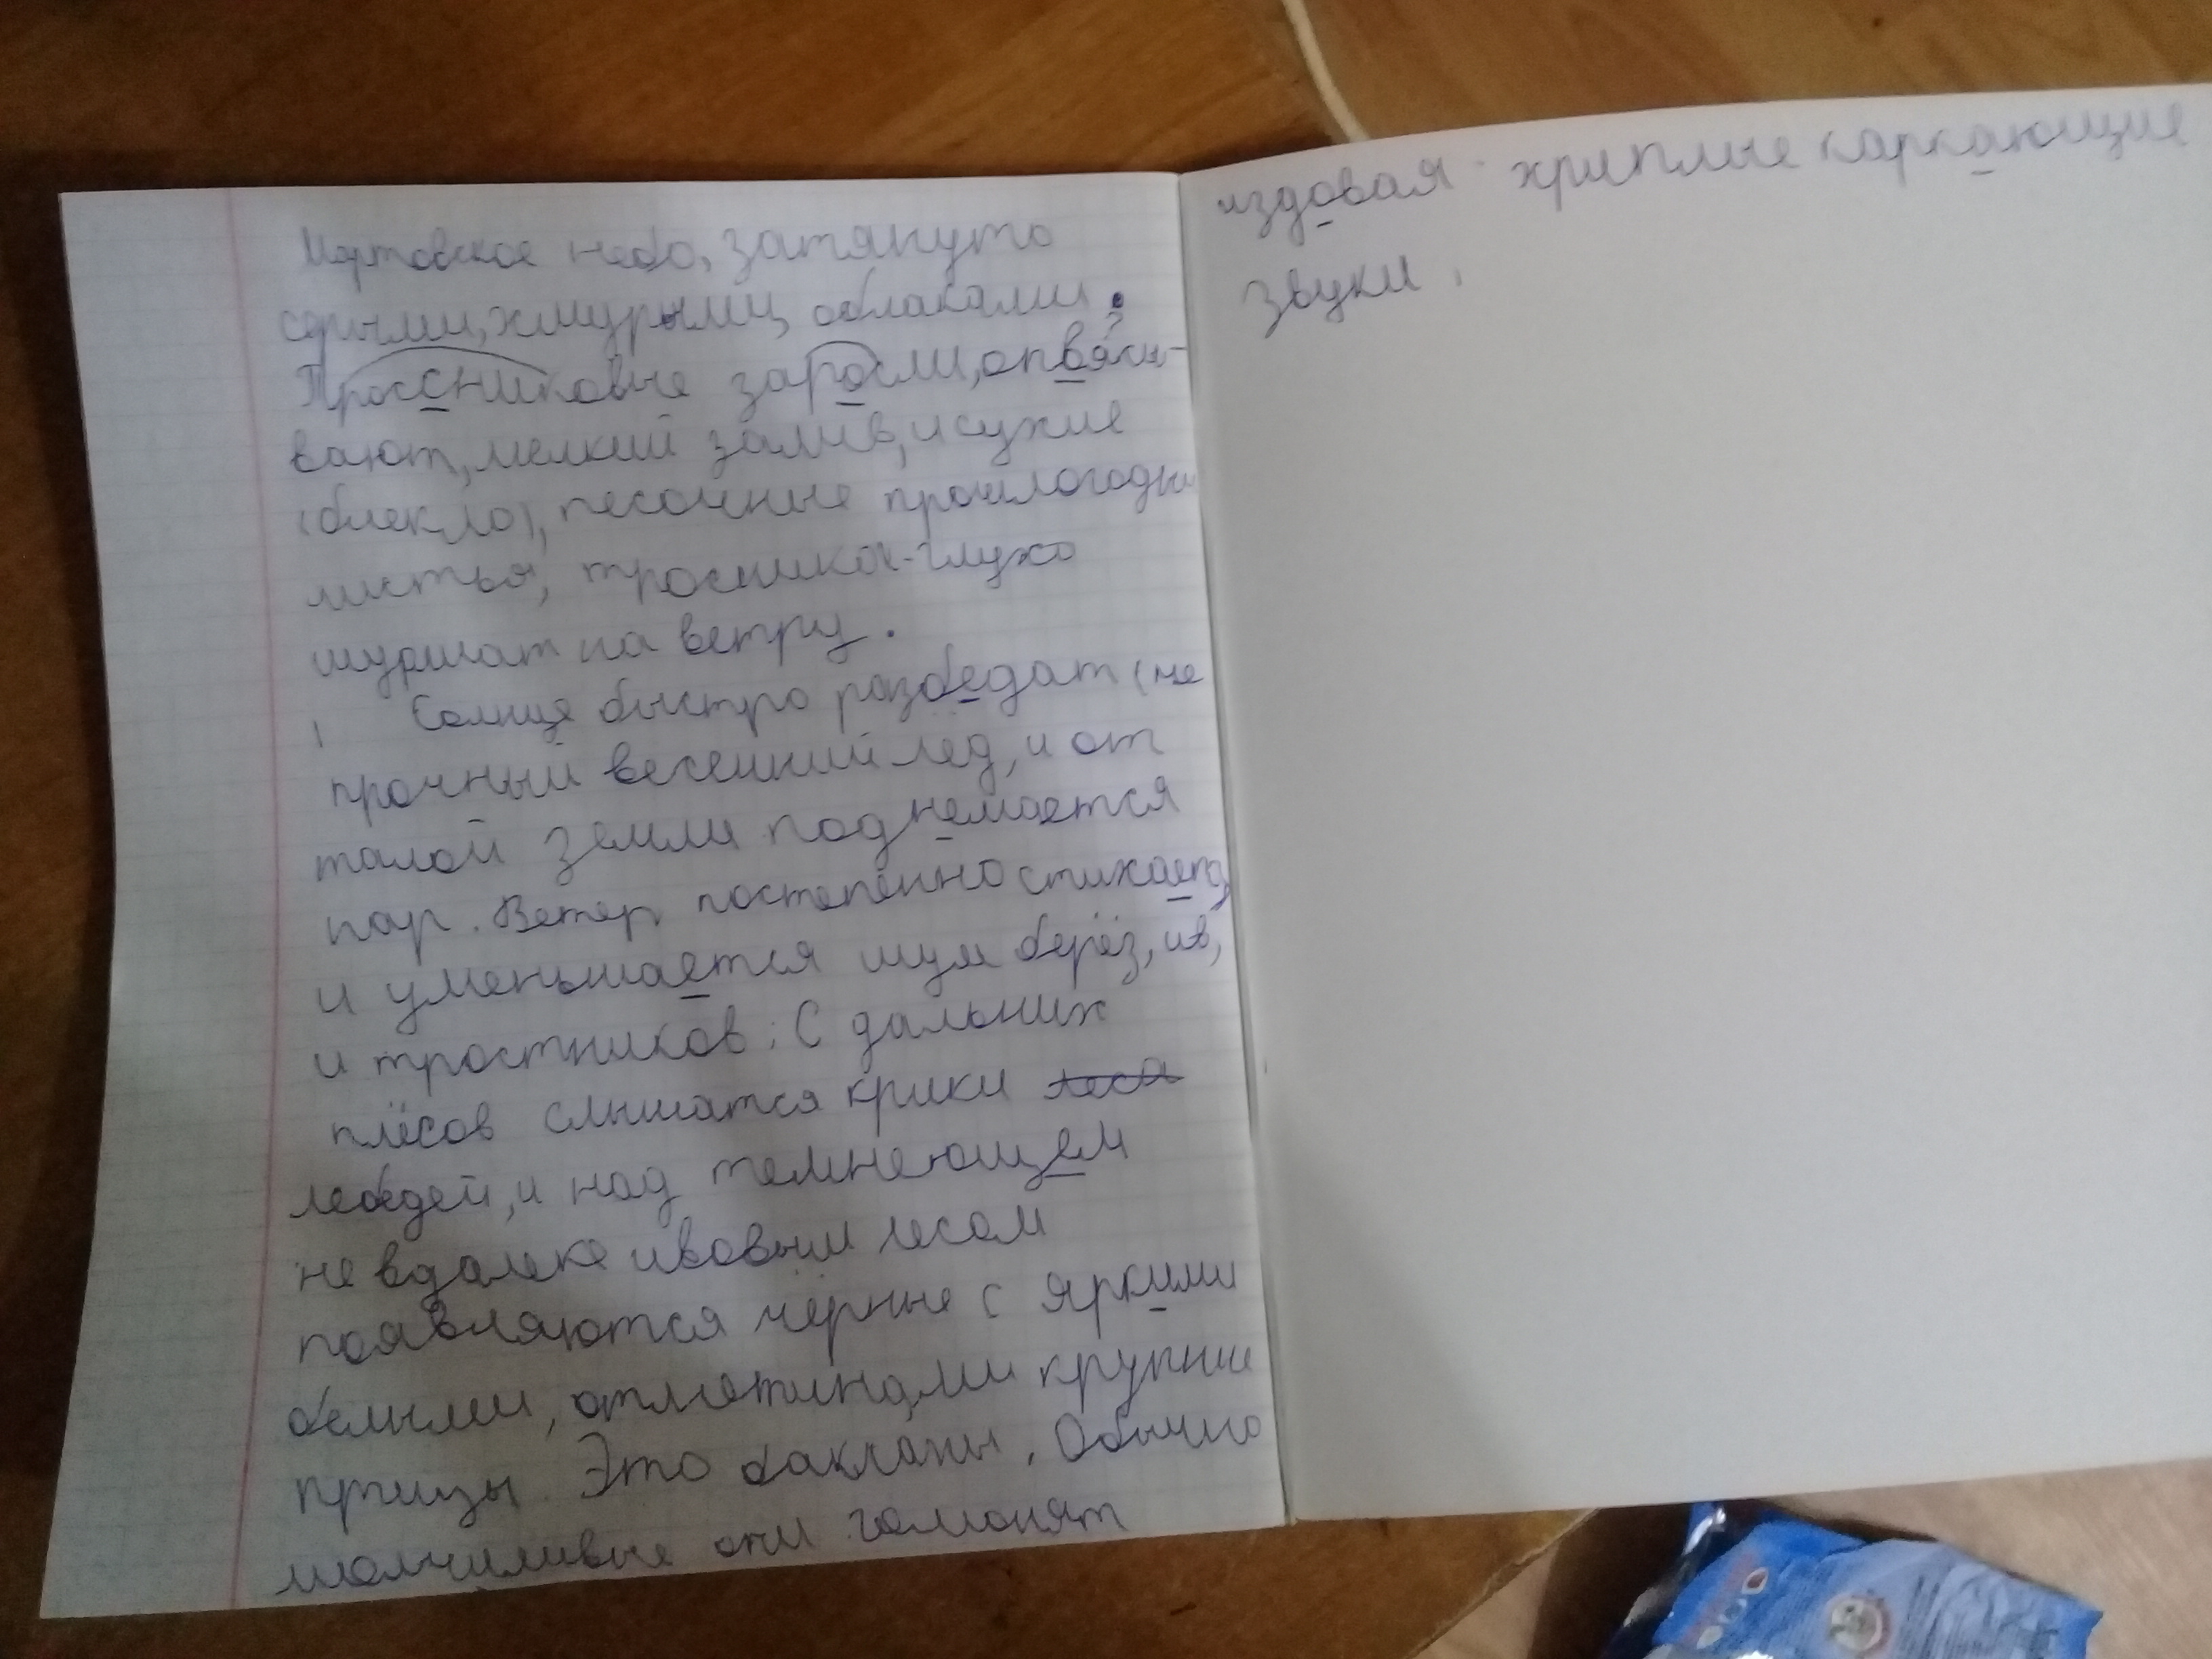 Мартовское небо, затянуто
серыми, хмурыми, облаками.
Просснековые заросли, опвясы-
вают, мелкий залив, и сухие
(блекло), песочные прошлогодни
листья, тросника-глухо
шуршат на ветру.
Солнце быстро розбедат (не
прочный весенний лёд, и от
талой земли поднемается
пар. Ветер постепенно стихает,
и уменьшается шум берёз, ив,
и тростников. С дальних
плёсов слышатся крики леса
лебедей, и над темнеющем
не вдалеке ивовым лесом
появляются чёрные с яркими
белыми, отметинами крупные
птицы. Это бакланы. Обычно
молчиливые они гомонят
издовая хриплые каркающие
звуки.